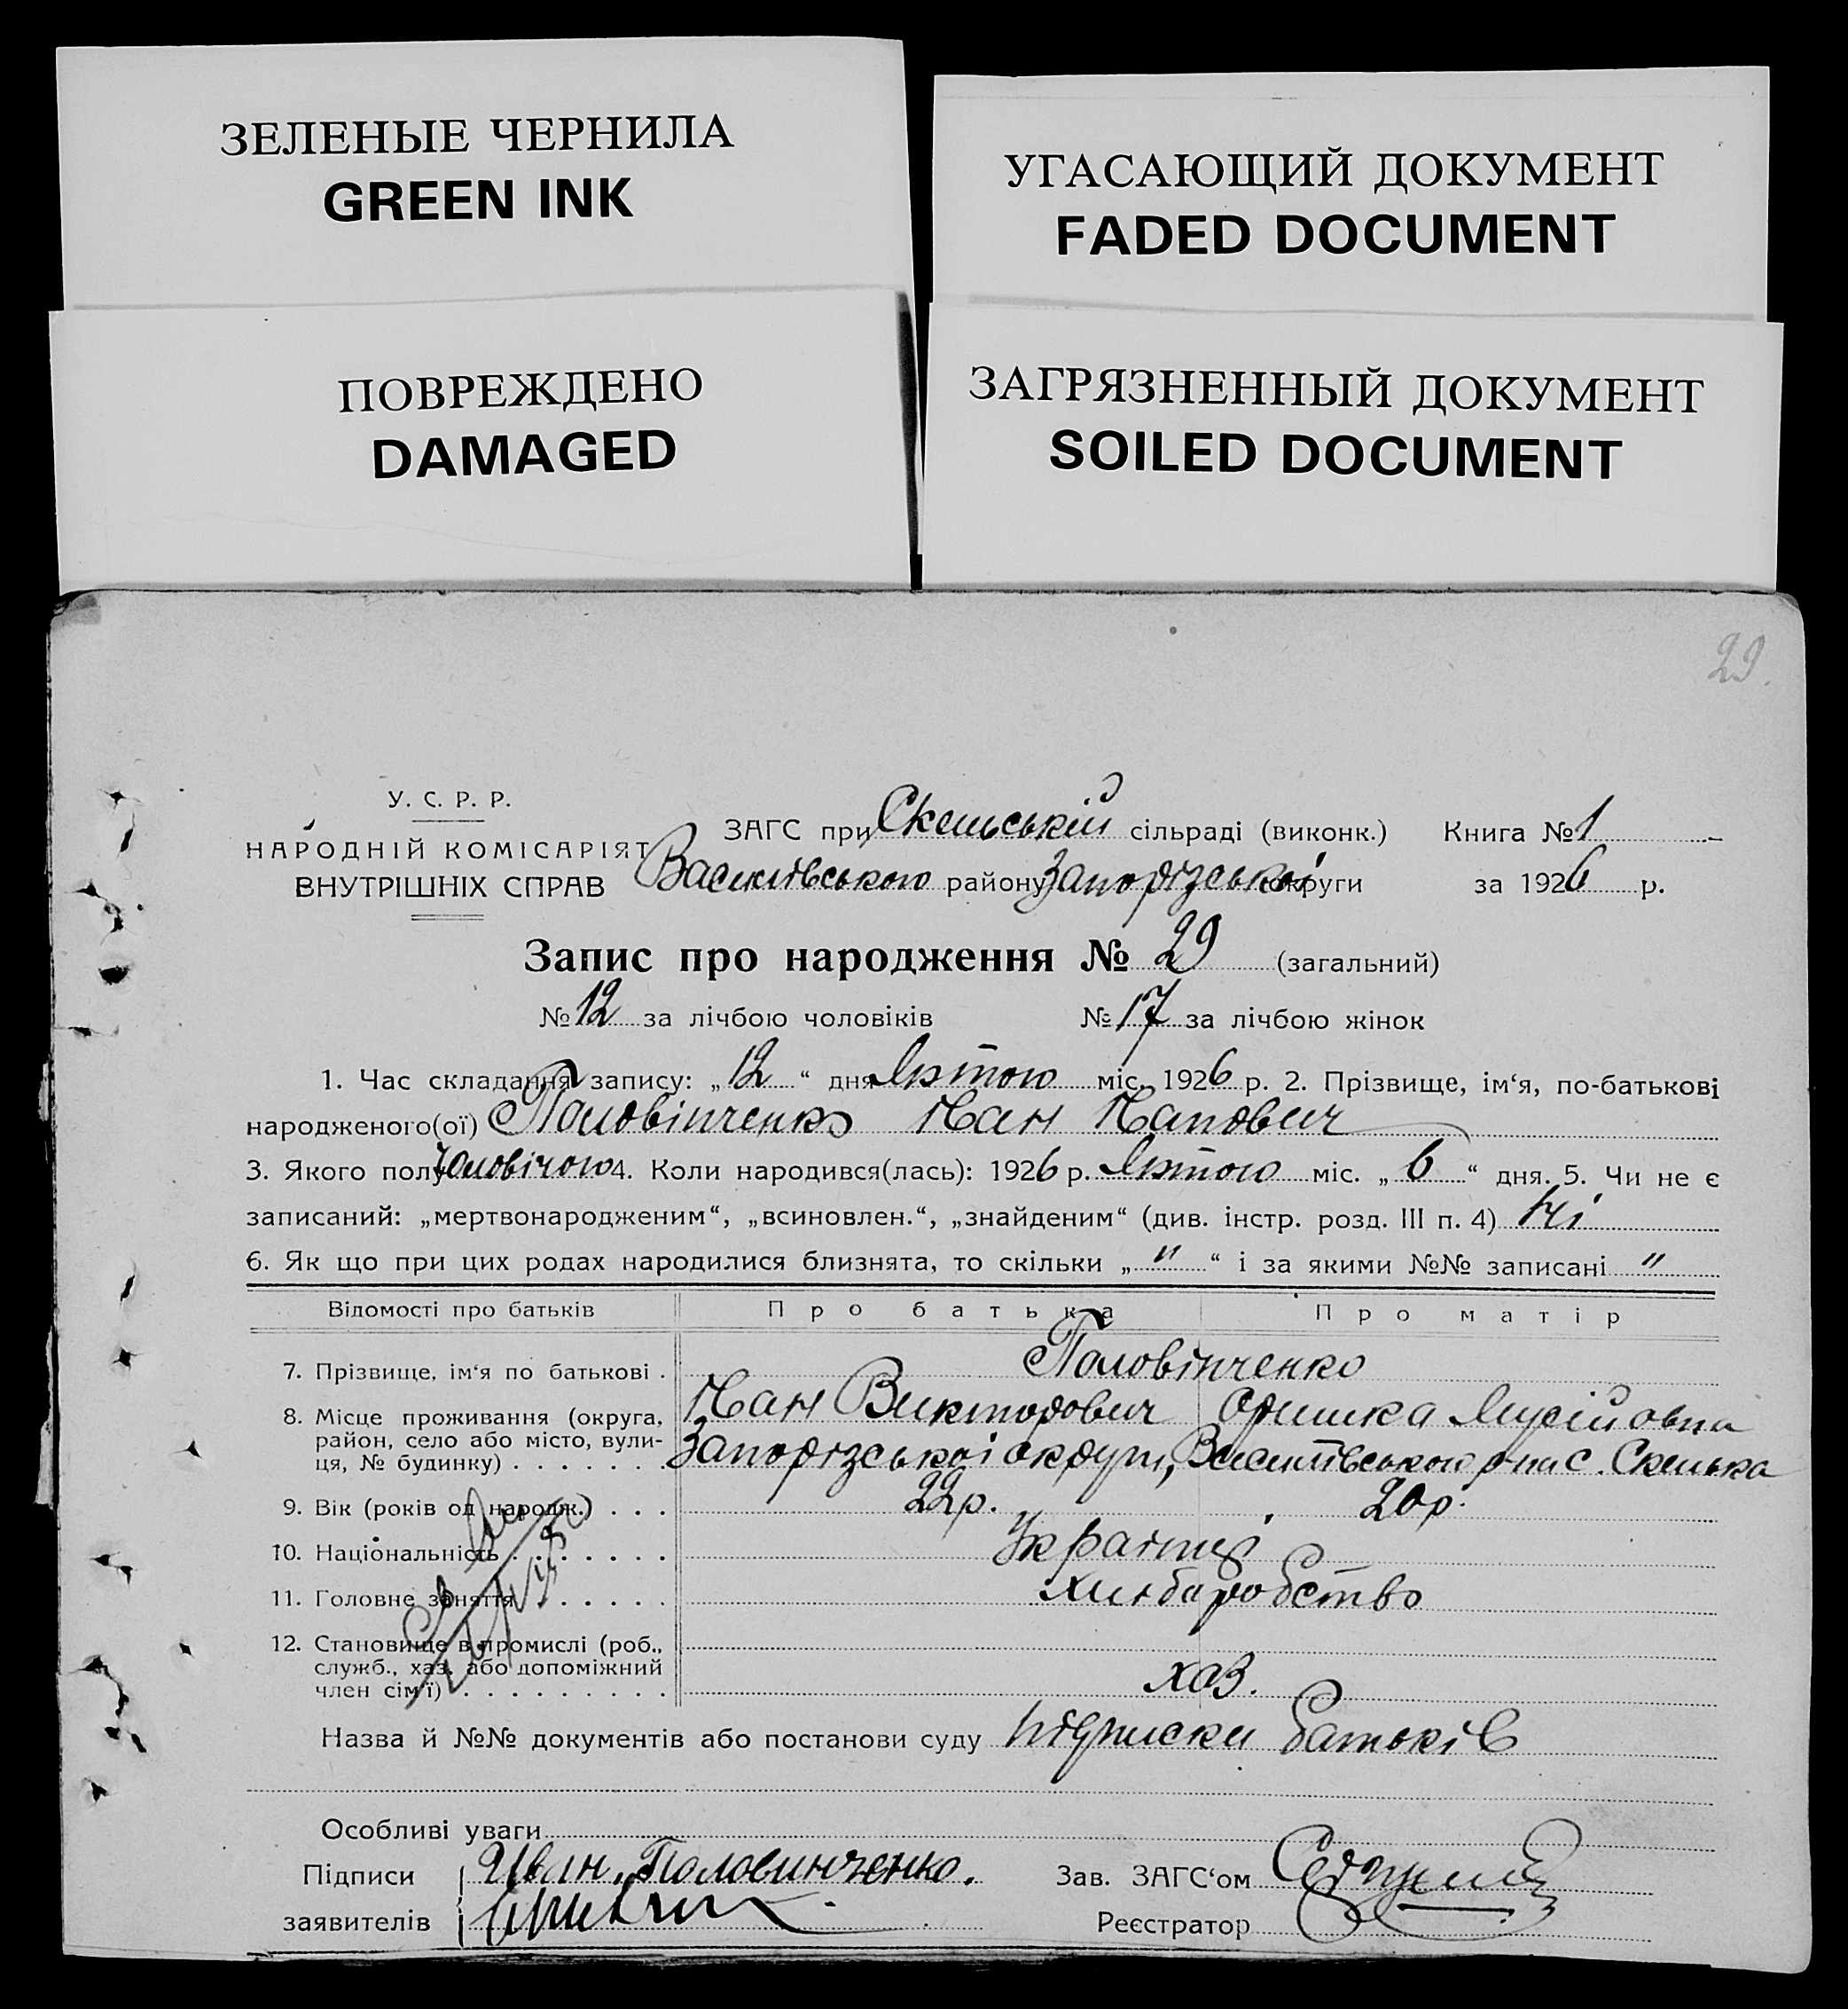 ЗЕЛЕНЫЕ ЧЕРНИЛА
GREEN INK
УГАСАЮЩИЙ ДОКУМЕНТ
FADED DOCUMENT
ПОВРЕЖДЕНО
DAMAGED
ЗАГРЯЗНЕННЫЙ ДОКУМЕНТ
SOILED DOCUMENT
29.
У. С. Р. Р.
НАРОДНІЙ КОМІСАРІЯТ
ВНУТРІШНІХ СПРАВ
ЗАГС при Скельській сільраді (виконк.) Книга № 1
Василівського району Запорізської округи за 1926 р.
Запис про народження № 29 (загальний)
№ 12 за лічбою чоловіків № 17 за лічбою жінок
1. Час складання запису: „12“ дня Лютого міс. 1926 р. 2. Прізвище, ім'я, по-батькові
народженого(ої) Половінченко Іван Іванович
3. Якого полу Чоловічого 4. Коли народився(лась): 1926 р. Лютого міс. „6“ дня. 5. Чи не є
записаний: „мертвонародженим“, „всиновлен.“, „знайденим“ (див. інстр. розд. III п. 4) Ні
6. Як що при цих родах народилися близнята, то скільки „ " “ і за якими №№ записані "
Відомості про батьків Про батька Про матір
7. Прізвище, ім'я по батькові . Половінченко
Іван Викторович Оришка Мусійовна
8. Місце проживання (округа,
район, село або місто, вули-
ця, № будинку) . . . . . . . Запорізської округи, Василівського р-на с. Скелька
9. Вік (років од народж.) . . . 22 р. 20 р.
10. Національність . . . . . . . Українці
11. Головне заняття . . . . . . Хліборобство
12. Становище в промислі (роб.,
служб., хаз. або допоміжний
член сім'ї) . . . . . . . . . хаз.
Назва й №№ документів або постанови суду підписки батьків
Особливі уваги
Підписи Иван. Половинченко.
заявителів
Зав. ЗАГС'ом
Реєстратор